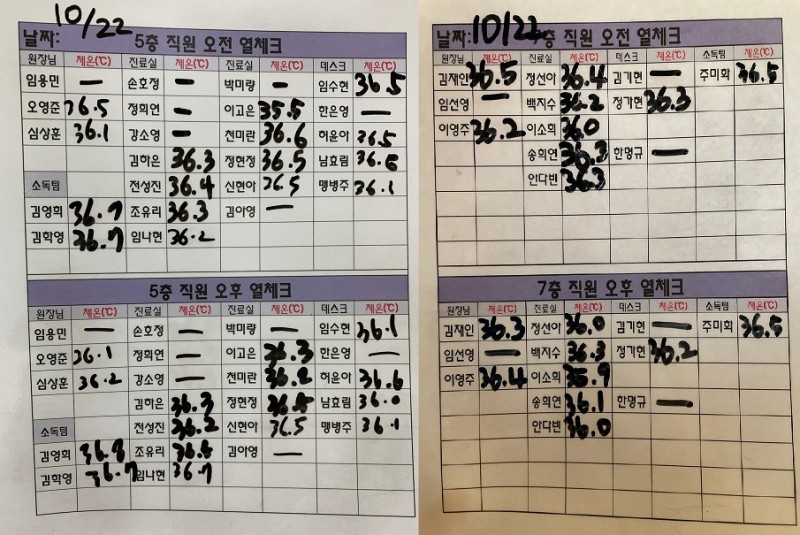 10/22
날짜: 5층 직원 오전 열체크
원장님 체온(℃) 진료실 체온(℃) 체온(℃) 데스크 체온(℃)
임용민 — 손호정 — 박미량 — 임수현 36.5
오영준 36.5 정희연 — 이고은 35.5 한은영 —
심상훈 36.1 강소영 — 전미란 36.6 허윤아 36.5
김하은 36.3 정현정 36.5 남효림 36.6
소독팀 전성진 36.4 신현아 36.5 맹병주 36.1
김영희 36.7 조유리 36.3 김아영 —
김학영 36.7 임나현 36.2
5층 직원 오후 열체크
원장님 체온(℃) 진료실 체온(℃) 체온(℃) 데스크 체온(℃)
임용민 — 손호정 — 박미량 — 임수현 36.1
오영준 36.1 정희연 — 이고은 36.3 한은영 —
심상훈 36.2 강소영 — 전미란 36.2 허윤아 36.6
김하은 36.3 정현정 남효림 36.0
소독팀 전성진 36.2 신현아 36.5 맹병주 36.1
김영희 36.8 조유리 김아영 —
김학영 36.7 임나현 36.7
날짜: 10/22 7층 직원 오전 열체크
원장님 체온(℃) 진료실 체온(℃) 데스크 체온(℃) 소독팀 체온(℃)
김재인 36.5 정선아 36.4 김기현 — 주미화 36.5
임선영 — 백지수 36.2 정가현 36.3
이영주 36.2 이소희 36.0
송희연 36.3 한명규 —
안다빈 36.3
7층 직원 오후 열체크
원장님 체온(℃) 진료실 체온(℃) 데스크 체온(℃) 소독팀 체온(℃)
김재인 36.3 정선아 36.0 김기현 — 주미화 36.5
임선영 — 백지수 36.3 정가현 36.2
이영주 36.4 이소희 35.9
송희연 36.1 한명규 —
안다빈 36.0